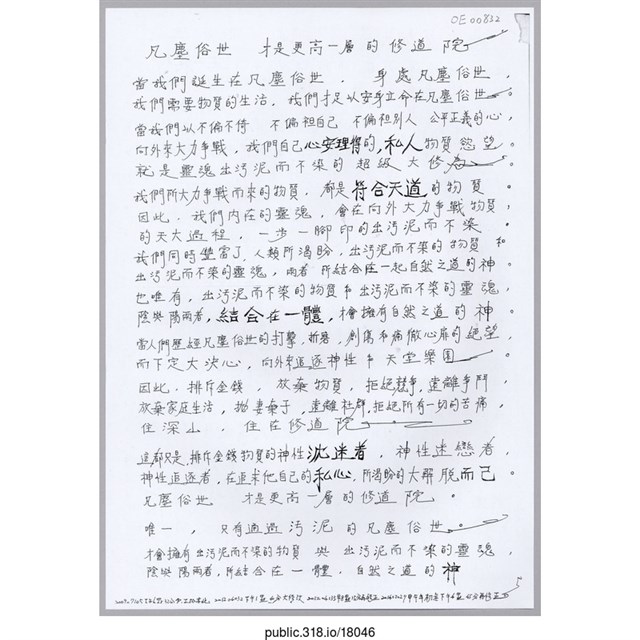 OE00832
凡塵俗世 才是更高一層的修道院
當我們誕生在凡塵俗世，身處凡塵俗世，
我們需要物質的生活，我們才足以安身立命在凡塵俗世。
當我們以不偏不倚 不偏袒自己 不偏袒別人 公平正義的心，
向外來大力爭戰，我們自己心安理得的，私人物質慾望。
就是靈魂出污泥而不染的超級大修
我們所大力爭戰而來的物質，都是符合天道的物質。
因此，我們內在的靈魂，會在向外大力爭戰物質，
的天大過程，一步一腳印的出污泥而不染。
我們同時豐富了，人類所渴盼，出污泥而不染的物質 和
出污泥而不染的靈魂，兩者 所結合在一起自然之道的神。
也唯有，出污泥而不染的物質 出污泥而不染的靈魂，
陰與陽兩者，結合在一體，才會擁有自然之道的神。
當人們歷經凡塵俗世的打擊，折磨，創傷 痛徹心扉的絕望，
而下定大決心，向外來追逐神性 天堂樂園
因此，排斥金錢，放棄物質，拒絕競爭，遠離爭鬥，
放棄家庭生活，拋妻棄子，遠離社群，拒絕所有一切的苦痛，
住深山，住在修道院
這都只是，排斥金錢物質的神性沈迷者，神性迷戀者，
神性追逐者，在追求他自己的私心，所渴盼的大解脫而已。
凡塵俗世 才是更高一層的修道院。
唯一，只有通過污泥的凡塵俗世。
才會擁有出污泥而不染的物質 與 出污泥而不染的靈魂，
陰與陽兩者，所結合在一體，自然之道的神
public.318.io/18046